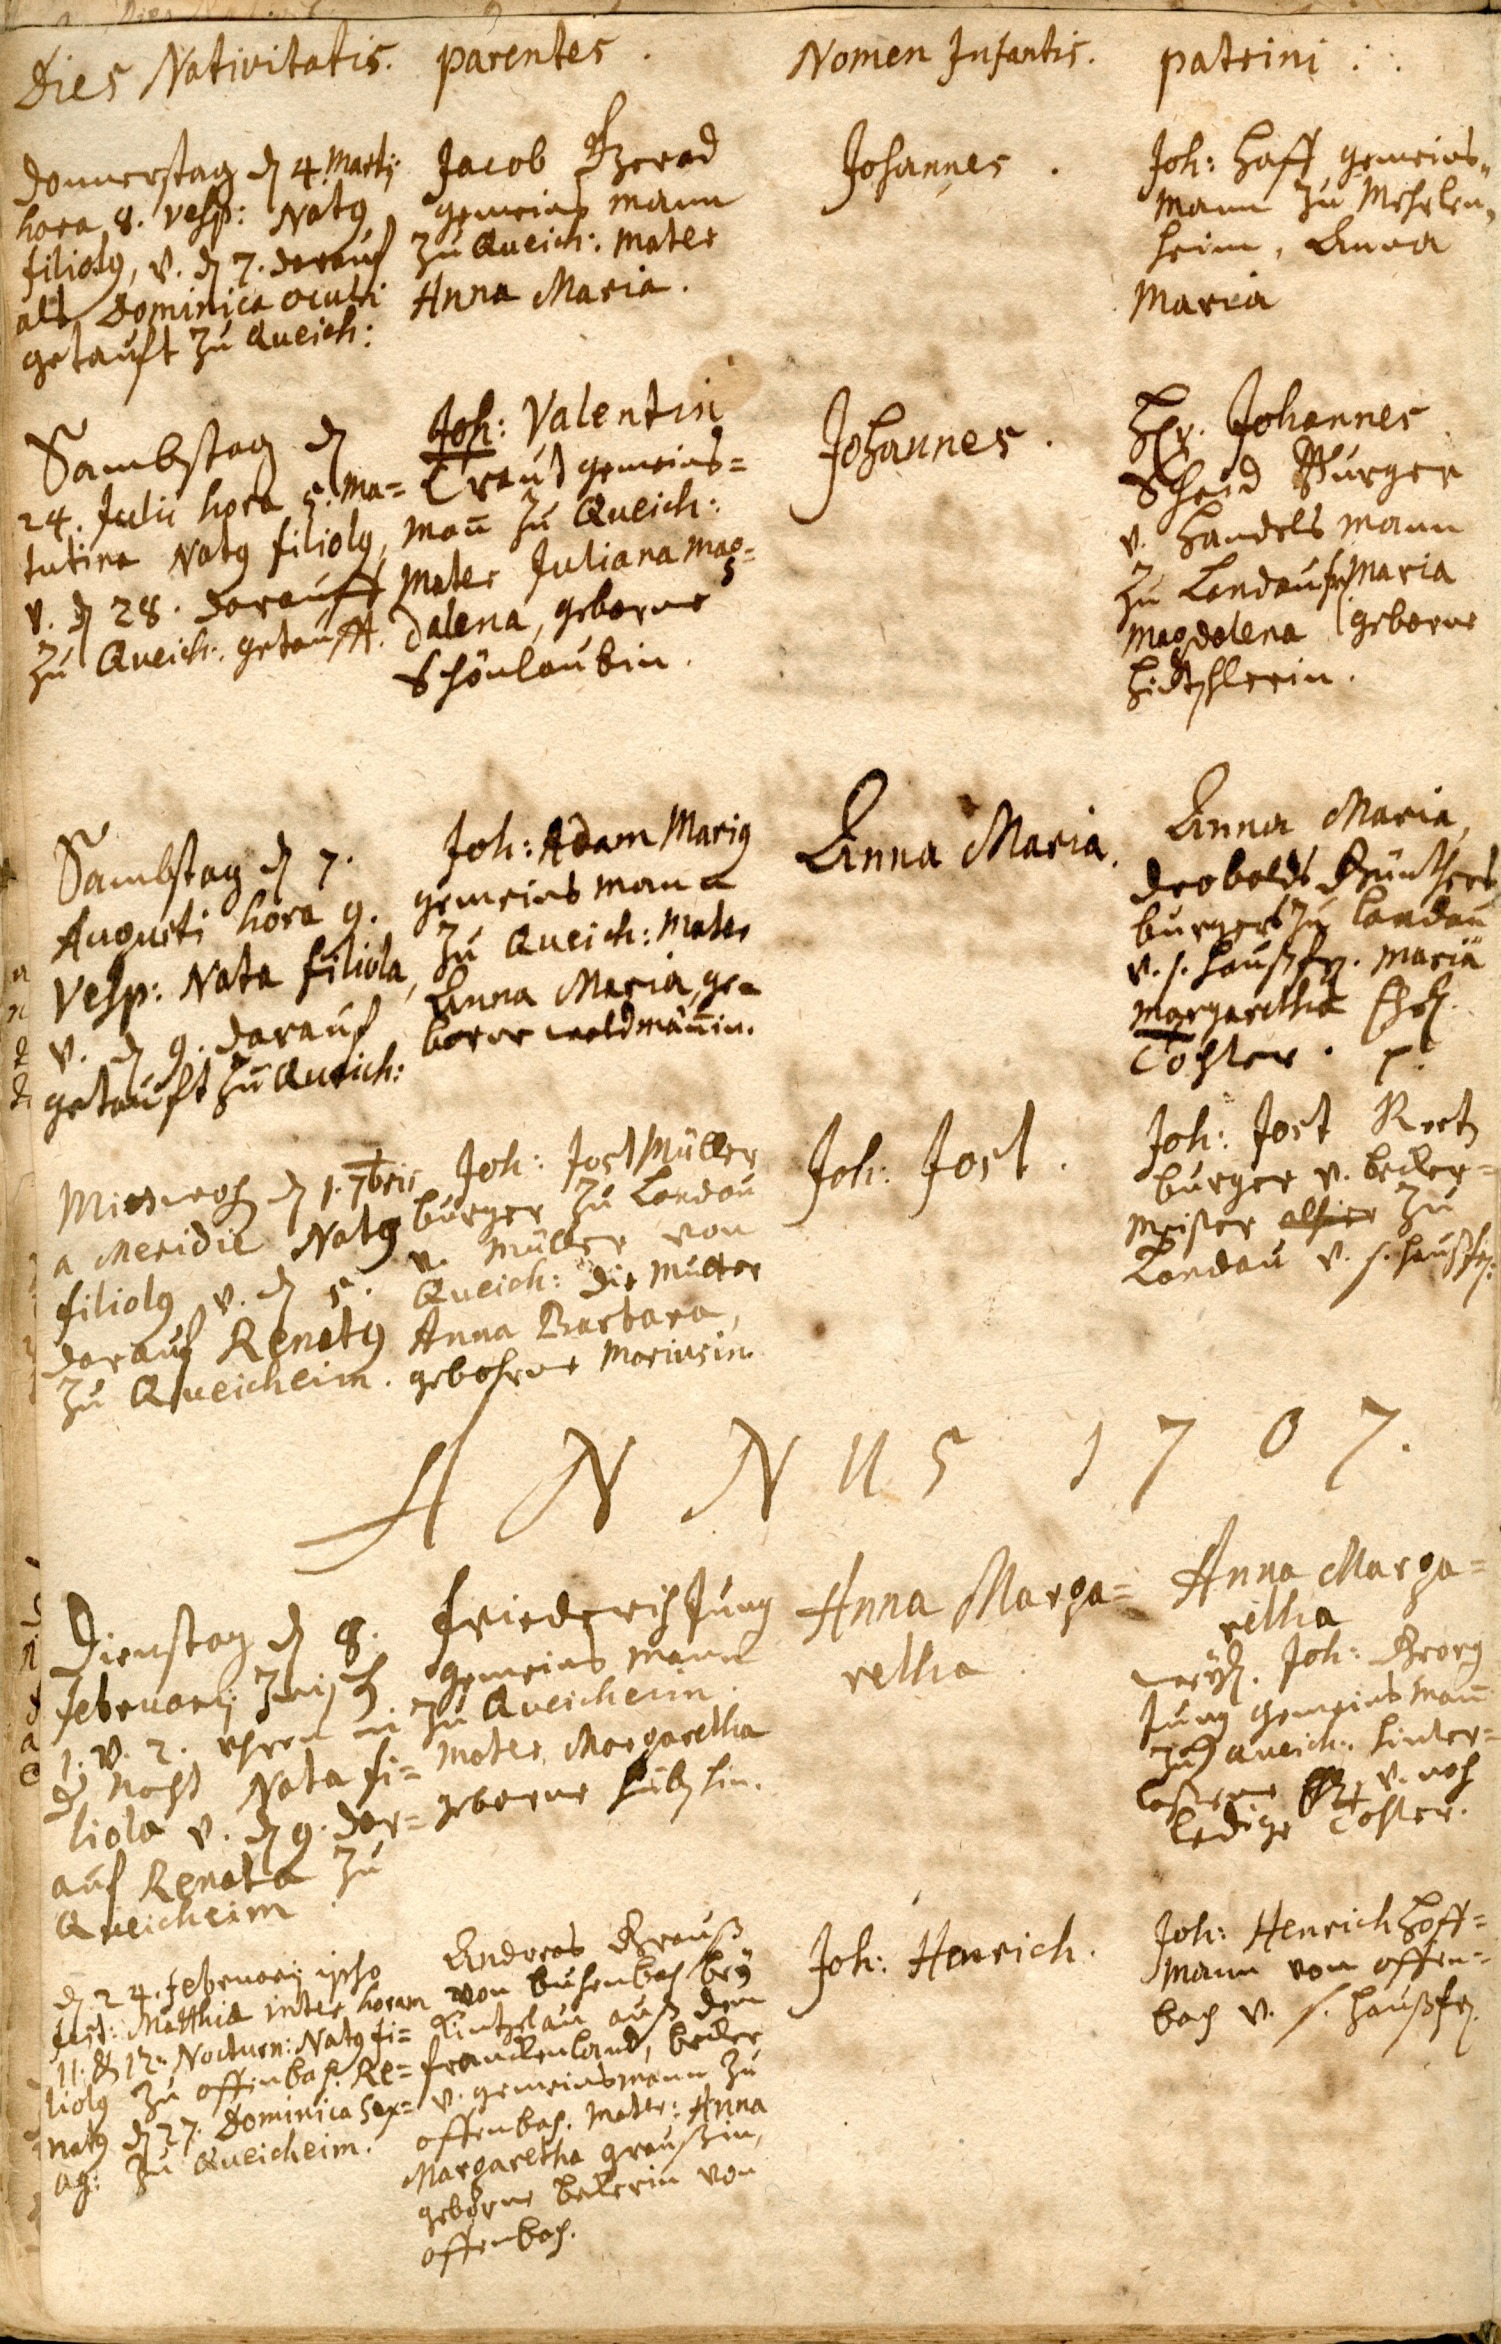 Dies Nativitatis. parentes. Nomen Infantis. patrini.
Donnerstag dn 4. Martij
hora 8. Vesp: Natus
filiolus, v. dn 7. darauf
als Dominica oculi
getauft zu Queich:
Jacob
gemeins mann
zu Queich: Mater
Anna Maria.
Johannes.
Joh: Haff gemeins=
mann zu Mehrlen,
heim, Anna
Maria
Sambstag dn
24. Julii hora 5. ma=
tutina Natus filiolus,
v. dn 28. darauff
zu Queich: getaufft.
Joh: Valentin
Trauß gemeins=
mañ zu Queich:
Mater Juliana Mag=
dalena, geborne
Schönlaubin.
Johannes.
Hr. Johannes
Scheid Burger
v. Handels mann
zu Landau Maria
Magdalena geborne
Sambstag dn 7.
Augusti hora 9.
Vesp: Nata filiola,
v. dn 9. darauf
getauft zu Queich:
Joh: Adam Marius
gemeins mann
zu Queich: Mater
Anna Maria, ge=
borne waldmäñin.
Anna Maria.
Anna Maria,
Deobalds Günthers
burgers zu Landau
v. s. haußfr. Mariä
Margaretha
Tochter.
Mitwoch dn 1. 7bris
a Meridie Natus
filiolus v. dn 5.
darauf Renatus
zu Queicheim.
Joh: Jost Müller
burger zu Landau
v. Müller von
Queich: die Mutter
Anna Barbara,
gebohrne Mariusin.
Joh: Jost.
Joh: Jost
burger v. becker=
meister alhier zu
Landau v. s. haußfr:
ANNUS 1707.
Dienstag dn 8.
februarij zwisch
1. v. 2. uhren in
d Nacht Nata fi=
liola v. dn 9. dar=
auf Renata zu
Queicheim
friederich Jung
gemeins mann
zu Queicheim.
Mater Margaretha
geborne
Anna Marga=
retha
Anna Marga=
retha
Joh: Georg
Jung gemeins mañ
zu Queich: hinter=
laßene v. noch
ledige Tochter.
dn 24. februarij ipso
fest: Matthiæ inter horam
11. & 12. Nocturn: Natus fi=
liolus zu offenbach. Re=
natus dn 27. Dominica Sex=
ag: zu Queicheim.
Andreas Grauß
von buchenbach bey
Kintzelau auß dem
franckenland, becker
v. gemeinsmann zu
offenbach. Mater: Anna
Margaretha Graußin,
geborne beckerin von
offenbach.
Joh: Henrich.
Joh: Henrich Hoff=
mann von offen=
bach v. s. haußfr.